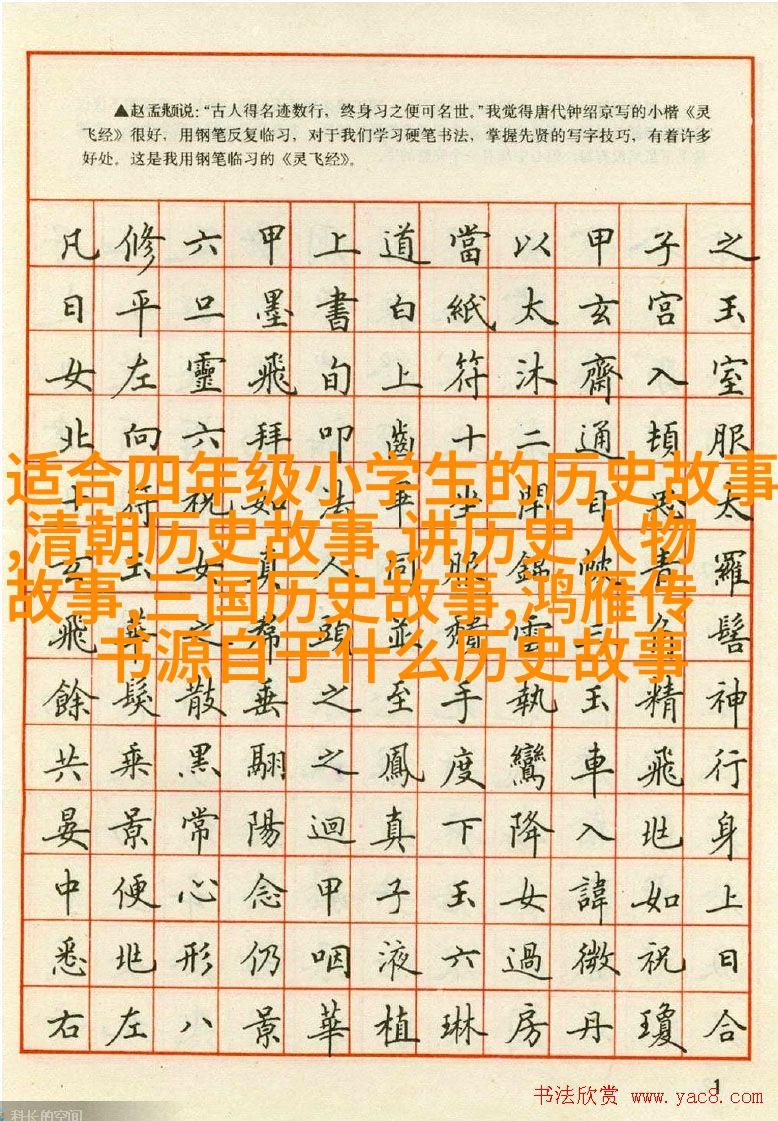 ▲赵孟頫说：“古人得名迹数行，终身习之便可名世。”我觉得唐代钟绍京写的小楷《灵
飞经》很好，用钢笔反复临习，对于我们学习硬笔书法，掌握先贤的写字技巧，有着许多
好处。这是我用钢笔临习的《灵飞经》。
凡修六甲上道當以甲子之
日平旦墨書白紙太玄宮玉
女左靈飛旬上符沐齋入室
北向六拜叩齒十二通頓服
十符祝如法畢坐開目思太
玄玉女真人同服錦帔青羅
飛華之帬頭並積雲三角髻
餘髮散垂之至手執玉精神
共乘黑翮之鳳度鸞車飛行
晏景常陽迴真下降入兆身
中便心念甲子玉女諱如上
悉兆形仍咽液六過微祝日
右左八景華植琳房丹瓊合
适合四年级小学生的历史故事
,清朝历史故事,讲历史人物
故事,三国历史故事,鸿雁传
书源自于什么历史故事
1
书法欣赏 www.yac8.com
科长的空间